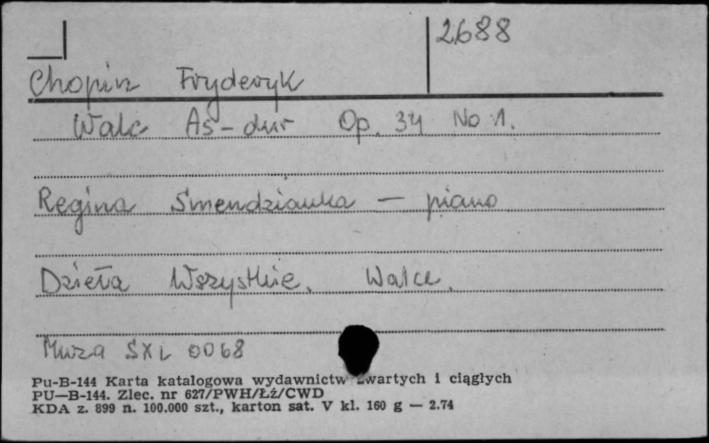 2688
Chopin Fryderyk
Walc As-dur Op. 34 No 1.
Regina Smendzianka — piano
Dzieła Wszystkie. Walce.
Muza SXL 0068
Pu-B-144 Karta katalogowa wydawnictw zwartych i ciągłych
PU—B-144. Zlec. nr 627/PWH/Łż/CWD
KDA z. 899 n. 100.000 szt., karton sat. V kl. 160 g — 2.74